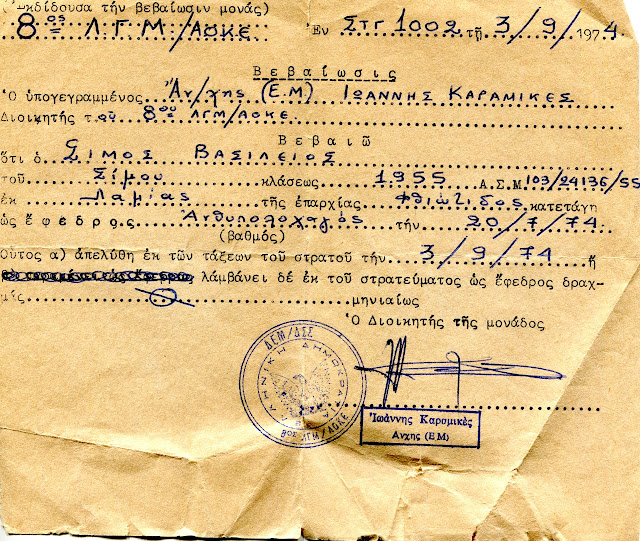 (Ἐκδίδουσα τήν βεβαίωσιν μονάς)
8ος ΛΓΜ/ΑΟΚΕ Ἐν ΣΤΓ 1002 τῇ 3/9/1974
Βεβαίωσις
Ὁ ὑπογεγραμμένος Ἀν/χης (Ε.Μ) ΙΩΑΝΝΗΣ ΚΑΡΑΜΙΚΕΣ
Διοικητής τ.οῦ 8ου ΛΓΜ/ΑΟΚΕ
Βεβαιῶ
ὅτι ὁ ΣΙΜΟΣ ΒΑΣΙΛΕΙΟΣ
τοῦ Σίμου κλάσεως 1955 Α.Σ.Μ 103/24136/55
ἐκ Λαμίας τῆς ἐπαρχίας Φθιώτιδος κατετάγη
ὡς ἔφεδρος Ἀνθυπολοχαγός τήν 20/7/74
(βαθμός)
Οὗτος α) ἀπελύθη ἐκ τῶν τάξεων τοῦ στρατοῦ τήν 3/9/74 ἤ
λαμβάνει δέ ἐκ τοῦ στρατεύματος ὡς ἔφεδρος δραχ-
μάς μηνιαίως
Ὁ Διοικητής τῆς μονάδος
ΔΕΜ/ΔΣΣ
ΕΛΛΗΝΙΚΗ ΔΗΜΟΚΡΑΤΙΑ
8ος ΛΓΜ/ΑΟΚΕ
Ἰωάννης Καραμικές
Ανχης (ΕΜ)